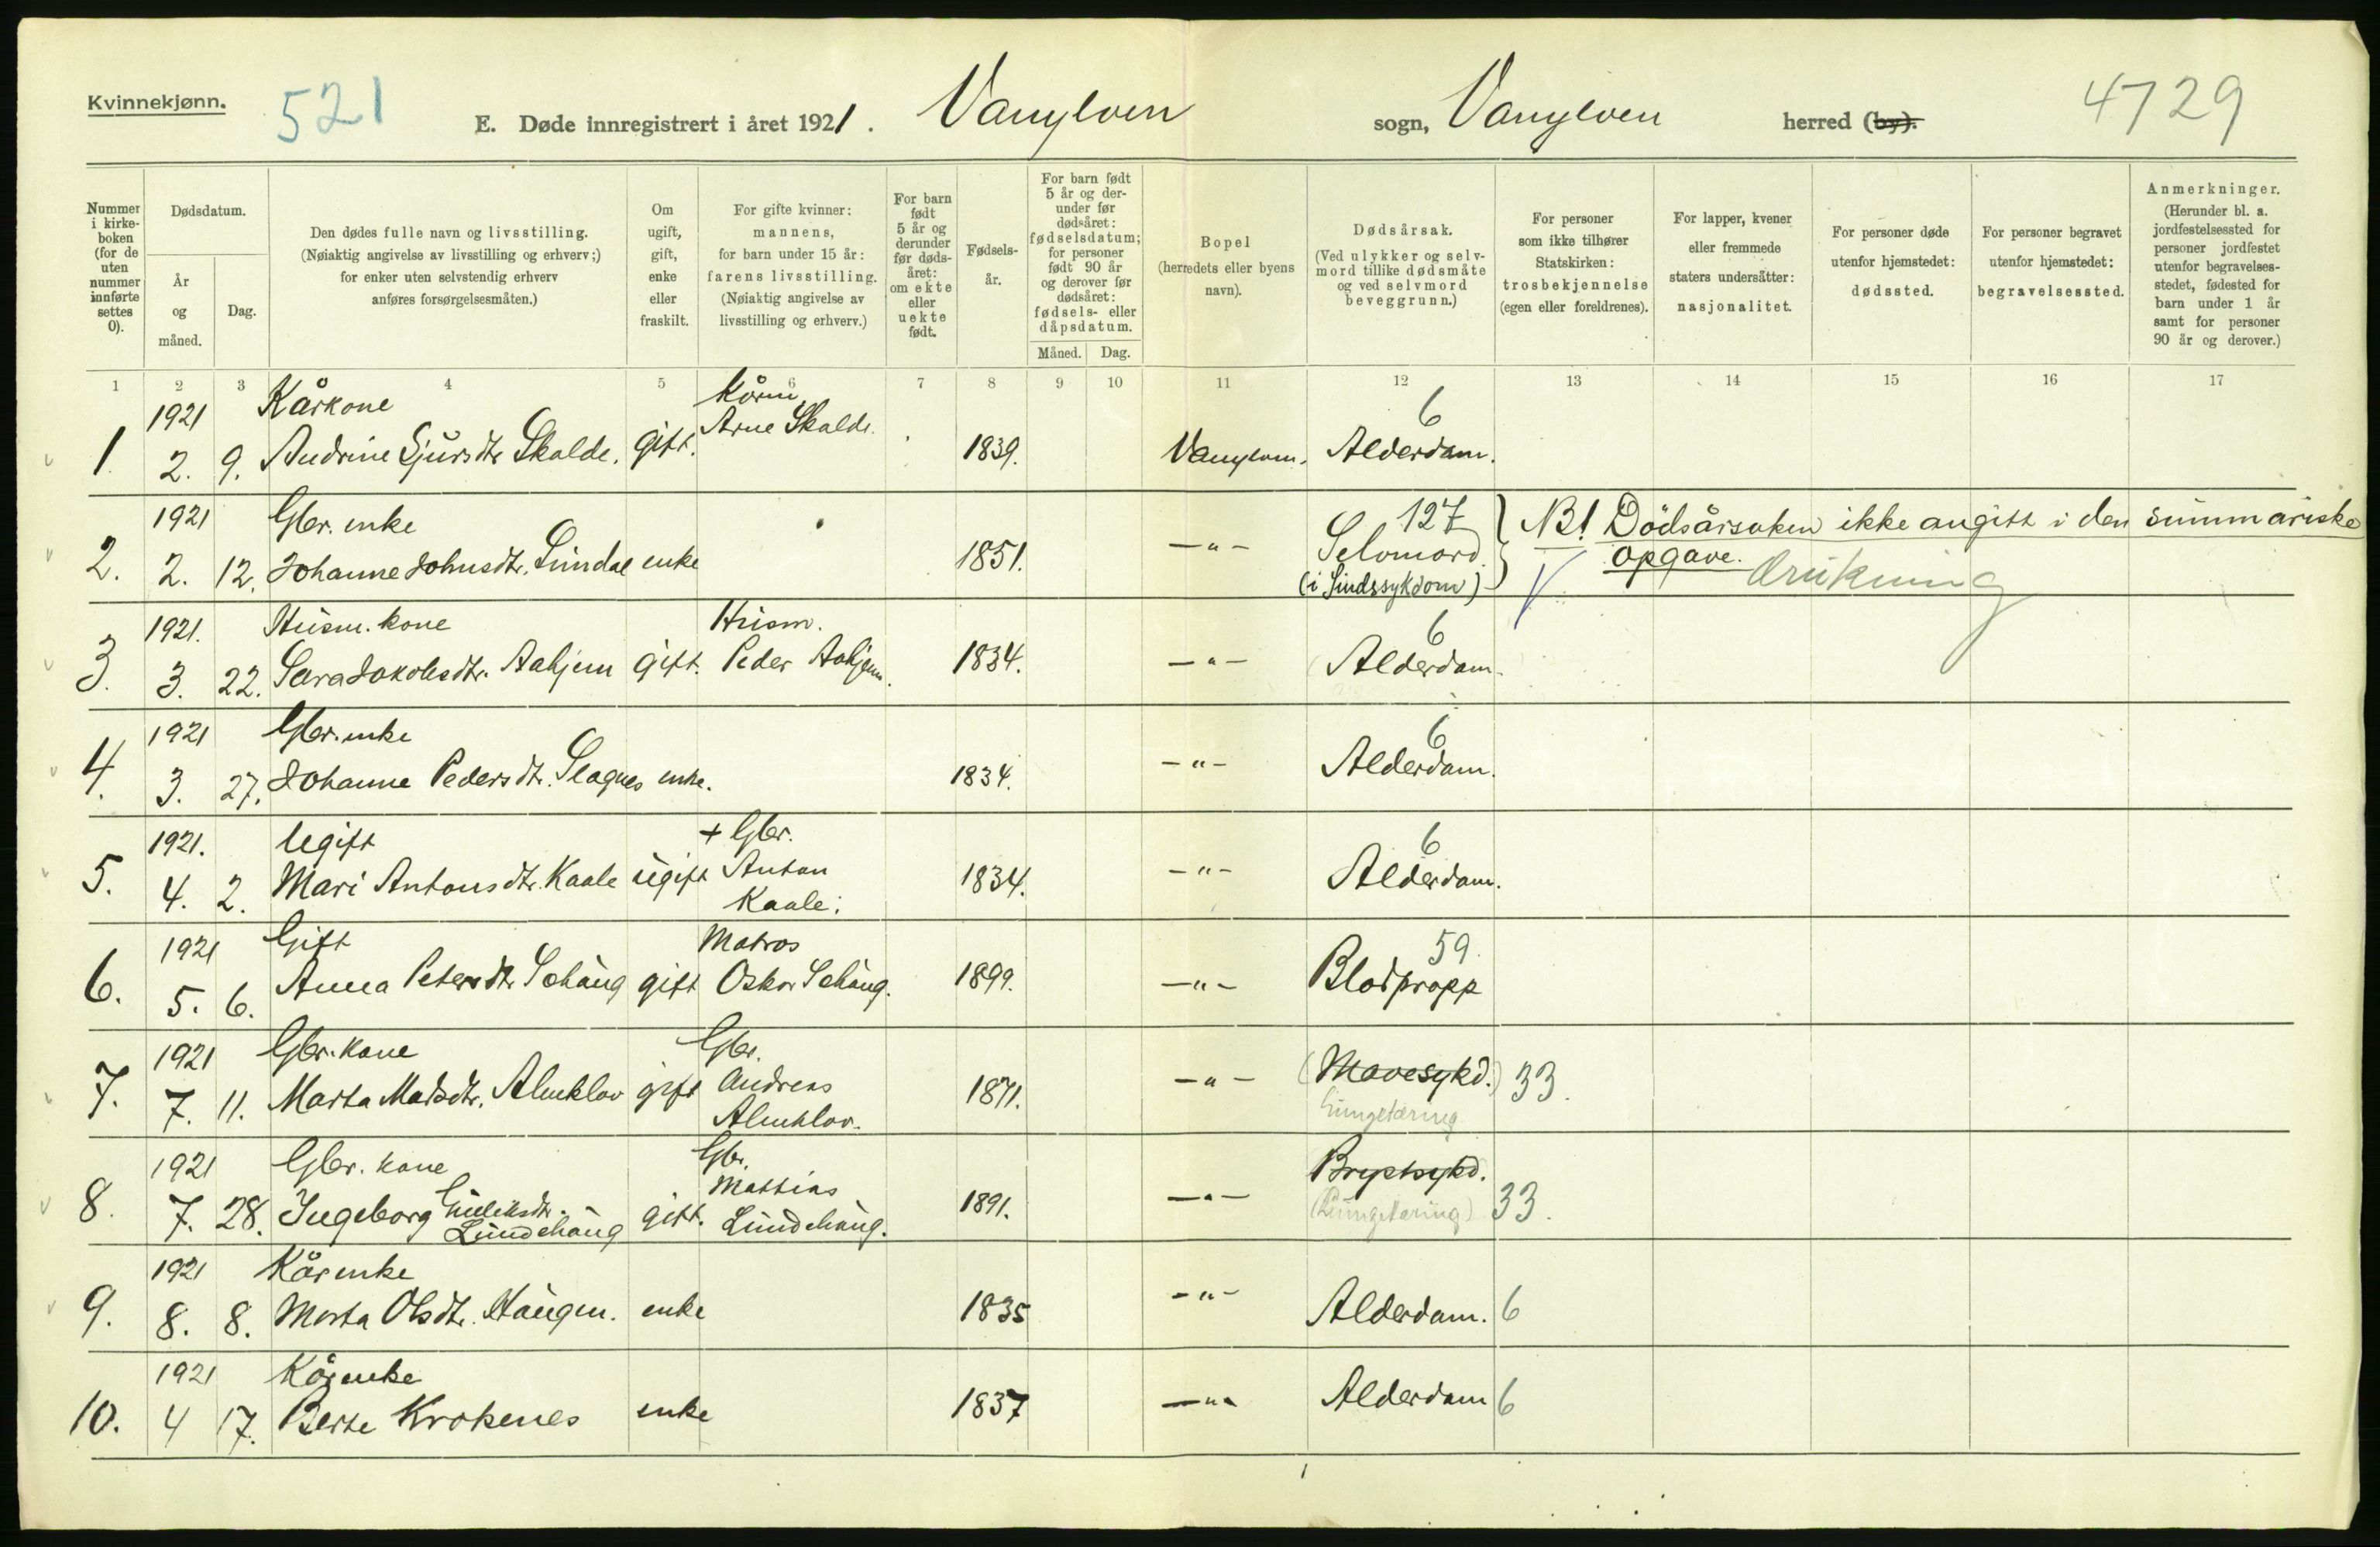 Kvinnekjønn.
521
E. Døde innregistrert i året 1921. Vanylven sogn, Vanylven herred (by).
4729
Nummer i kirke-boken (for de uten nummer innførte settes 0).
Dødsdatum.
År og måned.
Dag.
Den dødes fulle navn og livsstilling.
(Nøiaktig angivelse av livsstilling og erhverv;)
for enker uten selvstendig erhverv
anføres forsørgelsesmåten.)
Om ugift, gift, enke eller fraskilt.
For gifte kvinner:
mannens,
for barn under 15 år:
farens livsstilling.
(Nøiaktig angivelse av
livsstilling og erhverv.)
For barn født 5 år og derunder før døds-året: om ekte eller uekte født.
Fødsels-år.
For barn født 5 år og der-under før dødsåret: fødselsdatum; for personer født 90 år og derover før dødsåret: fødsels- eller dåpsdatum.
Måned. Dag.
Bopel
(herredets eller byens
navn).
Dødsårsak.
(Ved ulykker og selv-
mord tillike dødsmåte
og ved selvmord
beveggrunn.)
For personer
som ikke tilhører
Statskirken:
trosbekjennelse
(egen eller foreldrenes).
For lapper, kvener
eller fremmede
staters undersåtter:
nasjonalitet.
For personer døde
utenfor hjemstedet:
dødssted.
For personer begravet
utenfor hjemstedet:
begravelsessted.
Anmerkninger.
(Herunder bl. a.
jordfestelsessted for
personer jordfestet
utenfor begravelses-
stedet, fødested for
barn under 1 år
samt for personer
90 år og derover.)
1 2 3 4 5 6 7 8 9 10 11 12 13 14 15 16 17
1921 Kårkone Kårm. 6
1. 2. 9. Andrine Sjursdtr Skalde. gift. Arne Skalde. 1839. Vanylven. Alderdom.
1921 Gbr. enke 127 NB! Dödsårsaken ikke angitt i den summariske
2. 2. 12. Johanne Johnsdtr. Sindal enke 1851. -"- Selvmord opgave.
(i Sindssykdom) V Drukning
1921. Husm. kone Husm. 6
3. 3. 22. Sara Jakobsdtr. Aahjem gift. Peder Aahjem. 1834. -"- Alderdom.
1921 Gbr. enke 6
4. 3. 27. Johanne Pedersdtr. Slagnes enke. 1834. -"- Alderdom.
1921. Ugift + Gbr. 6
5. 4. 2. Mari Antonsdtr. Kaale ugift Anton Kaale. 1834. -"- Alderdom.
1921 Gift Matros 59.
6. 5. 6. Anna Petersdtr. Sehaug gift Oskar Sehaug. 1899. -"- Blodpropp
1921 Gbr. kone Gbr.
7. 7. 11. Marta Madsdtr. Almklov gift Andreas Almklov. 1871. -"- (Mavesykd.) 33.
Lungetæring
1921 Gbr. kone Gbr. Brystsykd.
8. 7. 28. Ingeborg Gulleiksdtr. Lundehaug gift. Mattias Lundehaug. 1891. -"- (Lungetæring) 33.
1921 Kårenke
9. 8. 8. Marta Olsdtr. Haugen. enke 1835 -"- Alderdom. 6
1921 Kårenke
10. 4 17. Berte Krokenes enke 1837 -"- Alderdom 6